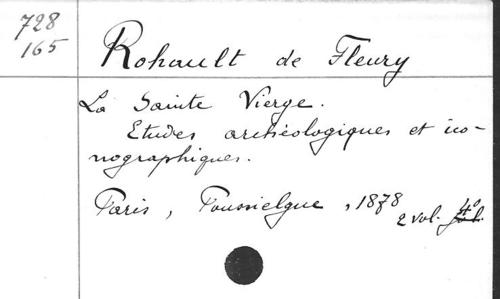 728
165
Rohault de Fleury
La Sainte Vierge.
Etudes archéologiques et ico-
nographiques.
Paris, Poussielgue, 1878
2 vol. 4º